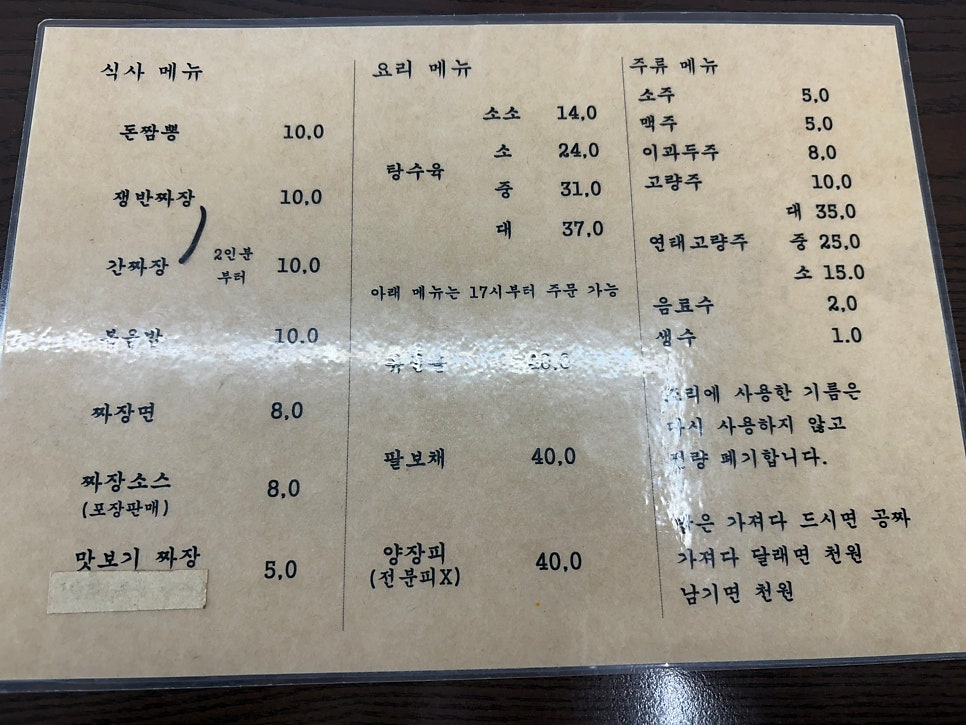 식사 메뉴
돈짬뽕 10,0
쟁반짜장 10,0
간짜장 2인분 부터 10,0
볶음밥 10.0
짜장면 8,0
짜장소스 8,0
(포장판매)
맛보기 짜장 5,0
요리 메뉴
소소 14,0
탕수육
소 24,0
중 31,0
대 37,0
아래 메뉴는 17시부터 주문 가능
팔보채 40,0
양장피 40,0
(전분피X)
주류 메뉴
소주 5,0
맥주 5,0
이과두주 8,0
고량주 10,0
대 35,0
연태고량주 중 25,0
소 15.0
음료수 2,0
생수 1.0
요리에 사용한 기름은
다시 사용하지 않고
전량 폐기합니다.
밥은 가져다 드시면 공짜
가져다 달래면 천원
남기면 천원